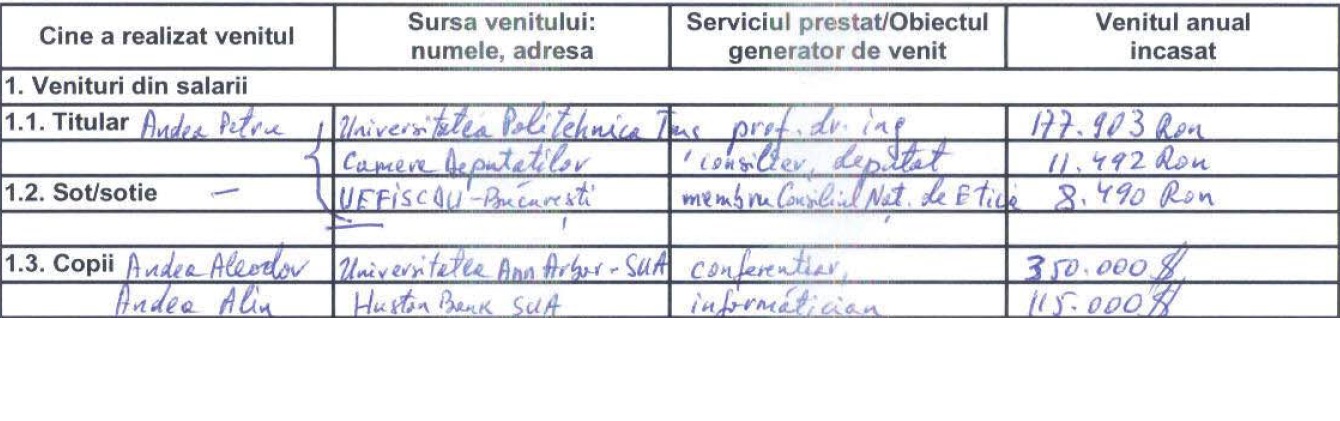 Cine a realizat venitul Sursa venitului: numele, adresa Serviciul prestat/Obiectul generator de venit Venitul anual incasat
1. Venituri din salarii
1.1. Titular Andea Petru Universitatea Politehnica Tms prof. dr. ing 177.903 Ron
Camera Deputatilor consilier, deputat 11.492 Ron
1.2. Sot/sotie — UEFISCDU - Bucuresti membru Consiliul Nat. de Etică 8.490 Ron
1.3. Copii Andea Universitatea Ann Arbor - SUA conferentiar, 350.000 $
Andea Alin Huston Bank SUA informatician 115.000 $